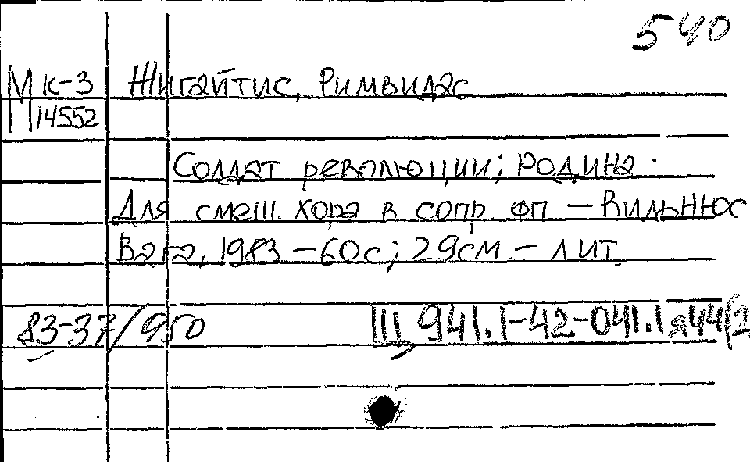 540
МК-3 Жигайтис, Римвидас
М14552
Солдат революции; Родина.
Для смеш. хора в сопр. фп – Вильнюс
Вага, 1983 – 60с; 29см – лит.
83-37/950 Ш 941.1-42-041.1я44(2